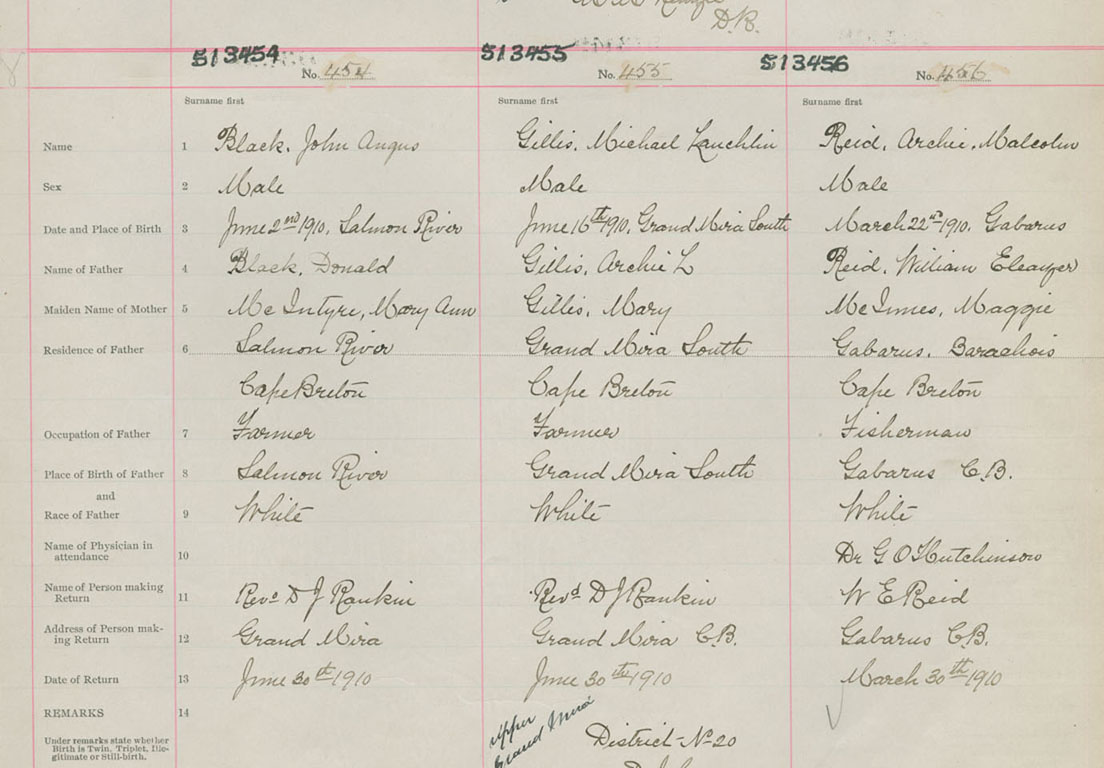 D.R.
513454 513455 513456
No. 454 No. 455 No. 456
Surname first Surname first Surname first
Name 1 Black, John Angus Gillis, Michael Lauchlin Reid, Archie, Malcolm
Sex 2 Male Male Male
Date and Place of Birth 3 June 2nd 1910, Salmon River June 16th 1910, Grand Mira South March 22nd 1910, Gabarus
Name of Father 4 Black, Donald Gillis, Archie L Reid, William Eleazer
Maiden Name of Mother 5 McIntyre, Mary Ann Gillis, Mary McInnes, Maggie
Residence of Father 6 Salmon River Grand Mira South Gabarus, Barachois
Cape Breton Cape Breton Cape Breton
Occupation of Father 7 Farmer Farmer Fisherman
Place of Birth of Father 8 Salmon River Grand Mira South Gabarus C.B.
and
Race of Father 9 White White White
Name of Physician in
attendance 10 Dr G O Hutchinson
Name of Person making
Return 11 Revd D J Rankin Revd D J Rankin W E Reid
Address of Person mak-
ing Return 12 Grand Mira Grand Mira C.B. Gabarus C.B.
Date of Return 13 June 30th 1910 June 30th 1910 March 30th 1910
REMARKS 14
Upper
Grand Mira
District No 20
Under remarks state whether
Birth is Twin, Triplet, Ille-
gitimate or Still-birth.